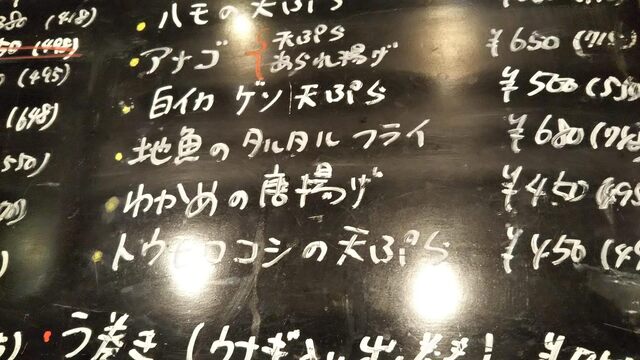 380 (418)
50 (495)
(495)
(648)
550)
・ハモの天ぷら
・アナゴ 天ぷら あられ揚げ ¥650 (715)
・白イカ ゲソ 天ぷら ¥500 (550
・地魚のタルタルフライ ¥680 (748
・わかめの唐揚げ ¥450 (495
・トウモロコシの天ぷら ¥450 (49
・う巻き (ウナギ